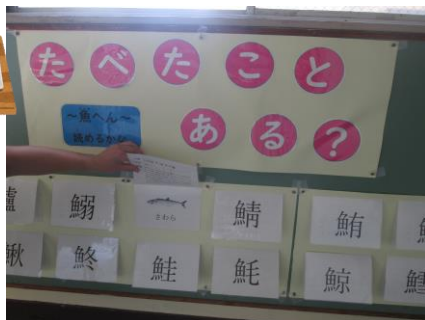 たべたこと
ある？
～魚へん～
読めるかな
鱸 鰯 さわら 鯖 鮪
鰍 鮗 鮭 魹 鯨 鱈